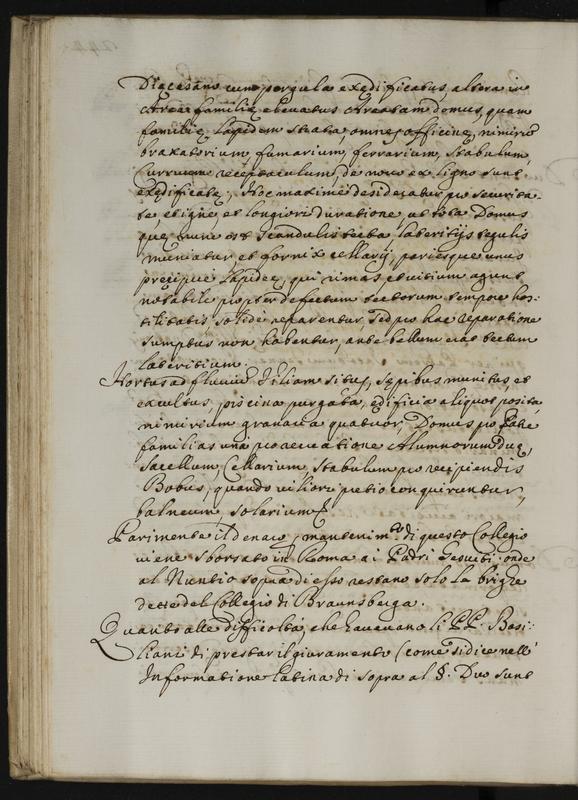 Diæcesano cum pergula exędificatus, altera in
Area familię elevatus Areatam domus, quam
familię lapidem strata omnes officinę, nimirum
braxatorium, fumarium, ferrarium, stabulum,
Curruum receptaculum, de novo ex ligno sunt
exędificatę; Hoc maxime desideratur pro securita-
te, et igne, et longiori duratione, ut tota Domus
quę nunc est scandulis tecta lateritijs tegulis
muniatur, et fornix cellarij, pariesque unus
pręcipuè lapideus, qui rimas et vitium agunt
notabile propter defectum tectorum tempore hos-
tilitatis solidè reparentur, sed pro hac reparatione
sumptus non habentur, ante bellum erat tectum
lateritium.
Hortus ad fluvium Viliam situs, sępibus munitus et
excultus, piscina purgata, ędificia aliquot posita,
nimirum granaria quatuor, Domus pro Patre
familias una pro recreatione Alumnorum duę,
Sacellum, Cellarium, stabulum pro recipiendis
Bobus, quando viliori pretio conquiruntur,
balneum, solarium &
Parimente il denaro p mantenim.to di questo Collegio
viene sborsato in Roma a i Padri Gesuiti, onde
al Nuntio sopra di esso restano solo la brighe
dette del Collegio di Braunsberga.
Quanto alle difficoltà, che havevano li PP. Basi-
liani di prestar il giuramento (come si dice nell'
Informatione latina di sopra al §. Duo sunt